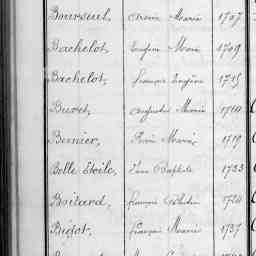 Bourseul, Marie 1707
Bachelot, Eugène Marie 1709
Bachelot, François Eugène 1715
Buret, Auguste Marie 1718
Bernier, Pierre Marie 1719
Belle Etoile, Jean Baptiste 1723
Boitard, François 1724
Bigot, François Marie 1737